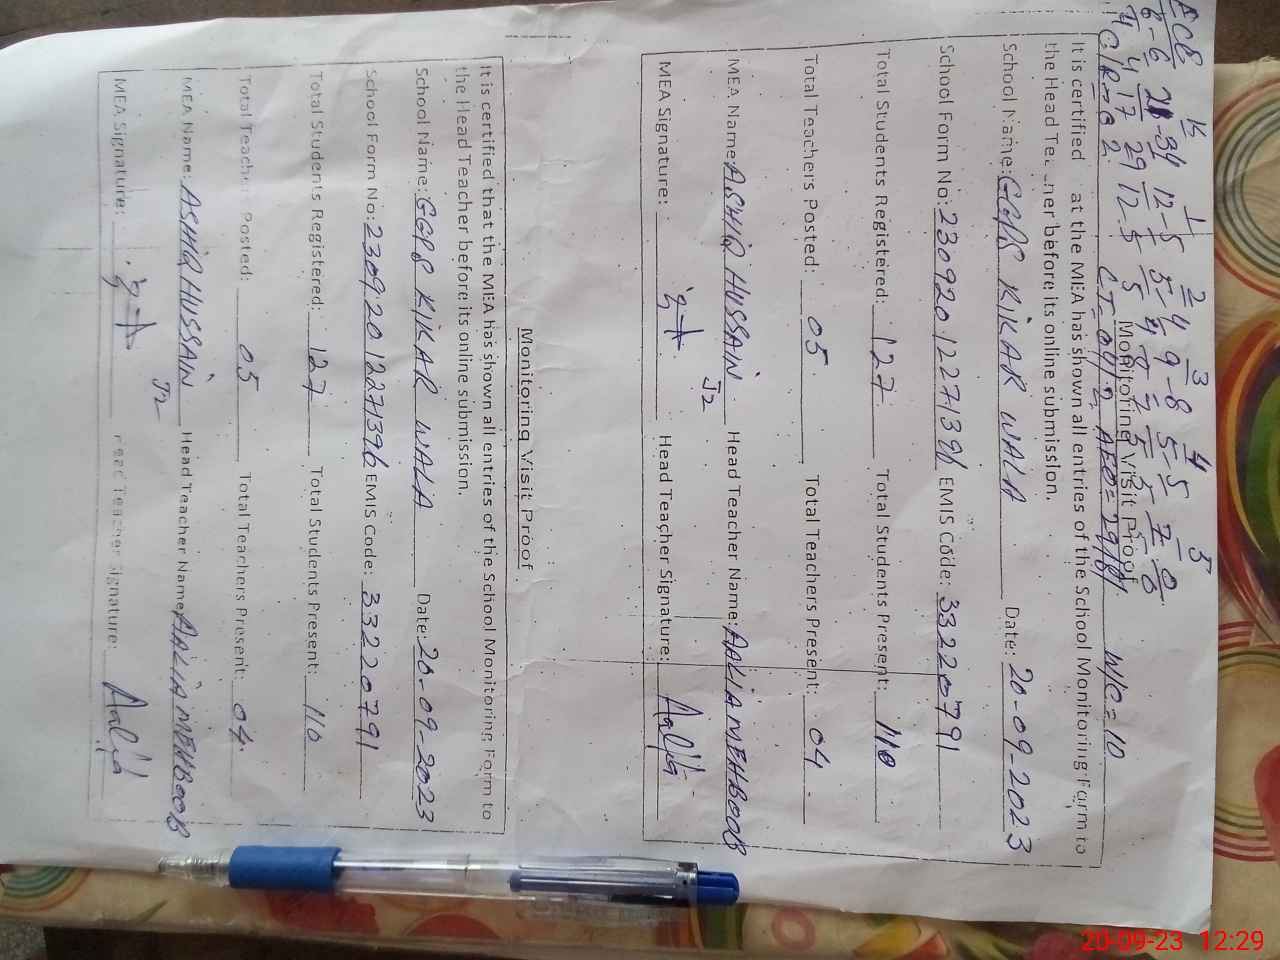 ECE K 1 2 3 4 5
8-6 21-34 12-5 5-4 9-8 5-5 7-8
4 4 17 29 12 5 5 4 8 7 5 5 5 8
Monitoring Visit Proof
W/C=10
It is certified at the MEA has shown all entries of the School Monitoring Form to
the Head Tea ner before its online submission.
School Name: GGPS KIKAR WALA Date: 20-09-2023
School Form No: 230920 12271396 EMIS Code: 33220791
Total Students Registered: 127 Total Students Present: 110
Total Teachers Posted: 05 Total Teachers Present: 04
MEA Name: ASHIQ HUSSAIN J2 Head Teacher Name: AALIA MEHBOOB
MEA Signature: Head Teacher Signature: Aalia
Monitoring Visit Proof
It is certified that the MEA has shown all entries of the School Monitoring Form to
the Head Teacher before its online submission.
School Name: GGPS KIKAR WALA Date: 20-09-2023
School Form No: 230920 12271396 EMIS Code: 33220791
Total Students Registered: 127 Total Students Present: 110
Total Teachers Posted: 05 Total Teachers Present: 04
MEA Name: ASHIQ HUSSAIN J2 Head Teacher Name: AALIA MEHBOOB
MEA Signature: Head Teacher Signature: Aalia
20-09-23 12:29